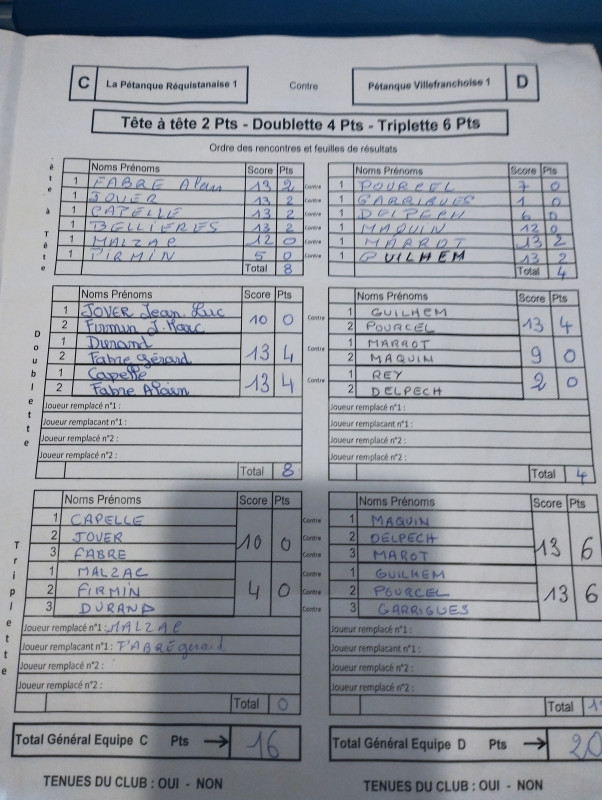 C La Pétanque Réquistanaise 1 Contre Pétanque Villefranchoise 1 D
Tête à tête 2 Pts - Doublette 4 Pts - Triplette 6 Pts
Ordre des rencontres et feuilles de résultats
Noms Prénoms Score Pts Noms Prénoms Score Pts
1 FABRE Alain 13 2 Contre 1 POURCEL 7 0
1 JOVER 13 2 Contre 1 GARRIGUES 1 0
1 CAPELLE 13 2 Contre 1 DELPECH 6 0
1 BELLIERES 13 2 Contre 1 MAQUIN 12 0
1 MALZAC 12 0 Contre 1 MARROT 13 2
1 FIRMIN 5 0 Contre 1 GUILHEM 13 2
Total 8 Total 4
Doublette
Noms Prénoms Score Pts Noms Prénoms Score Pts
1 JOVER Jean.Luc 10 0 Contre 1 GUILHEM 13 4
2 Firmin J.Marc 2 POURCEL
1 Durand 13 4 Contre 1 MARROT 9 0
2 Fabre Gérard 2 MAQUIN
1 Capelle 13 4 Contre 1 REY 2 0
2 Fabre Alain 2 DELPECH
Joueur remplacé n°1 : Joueur remplacé n°1 :
Joueur remplacant n°1 : Joueur remplacant n°1 :
Joueur remplacé n°2 : Joueur remplacé n°2 :
Joueur remplacé n°2 : Joueur remplacé n°2 :
Total 8 Total 4
Triplette
Noms Prénoms Score Pts Noms Prénoms Score Pts
1 CAPELLE 10 0 Contre 1 MAQUIN 13 6
2 JOVER Contre 2 DELPECH
3 FABRE Contre 3 MAROT
1 MALZAC 4 0 Contre 1 GUILHEM 13 6
2 FIRMIN Contre 2 POURCEL
3 DURAND Contre 3 GARRIGUES
Joueur remplacé n°1 : MALZAC Joueur remplacé n°1 :
Joueur remplacant n°1 : Joueur remplacant n°1 :
Joueur remplacé n°2 : Joueur remplacé n°2 :
Joueur remplacé n°2 : Joueur remplacé n°2 :
Total 0 Total
Total Général Equipe C Pts → 16 Total Général Equipe D Pts → 20
TENUES DU CLUB : OUI - NON TENUES DU CLUB : OUI - NON